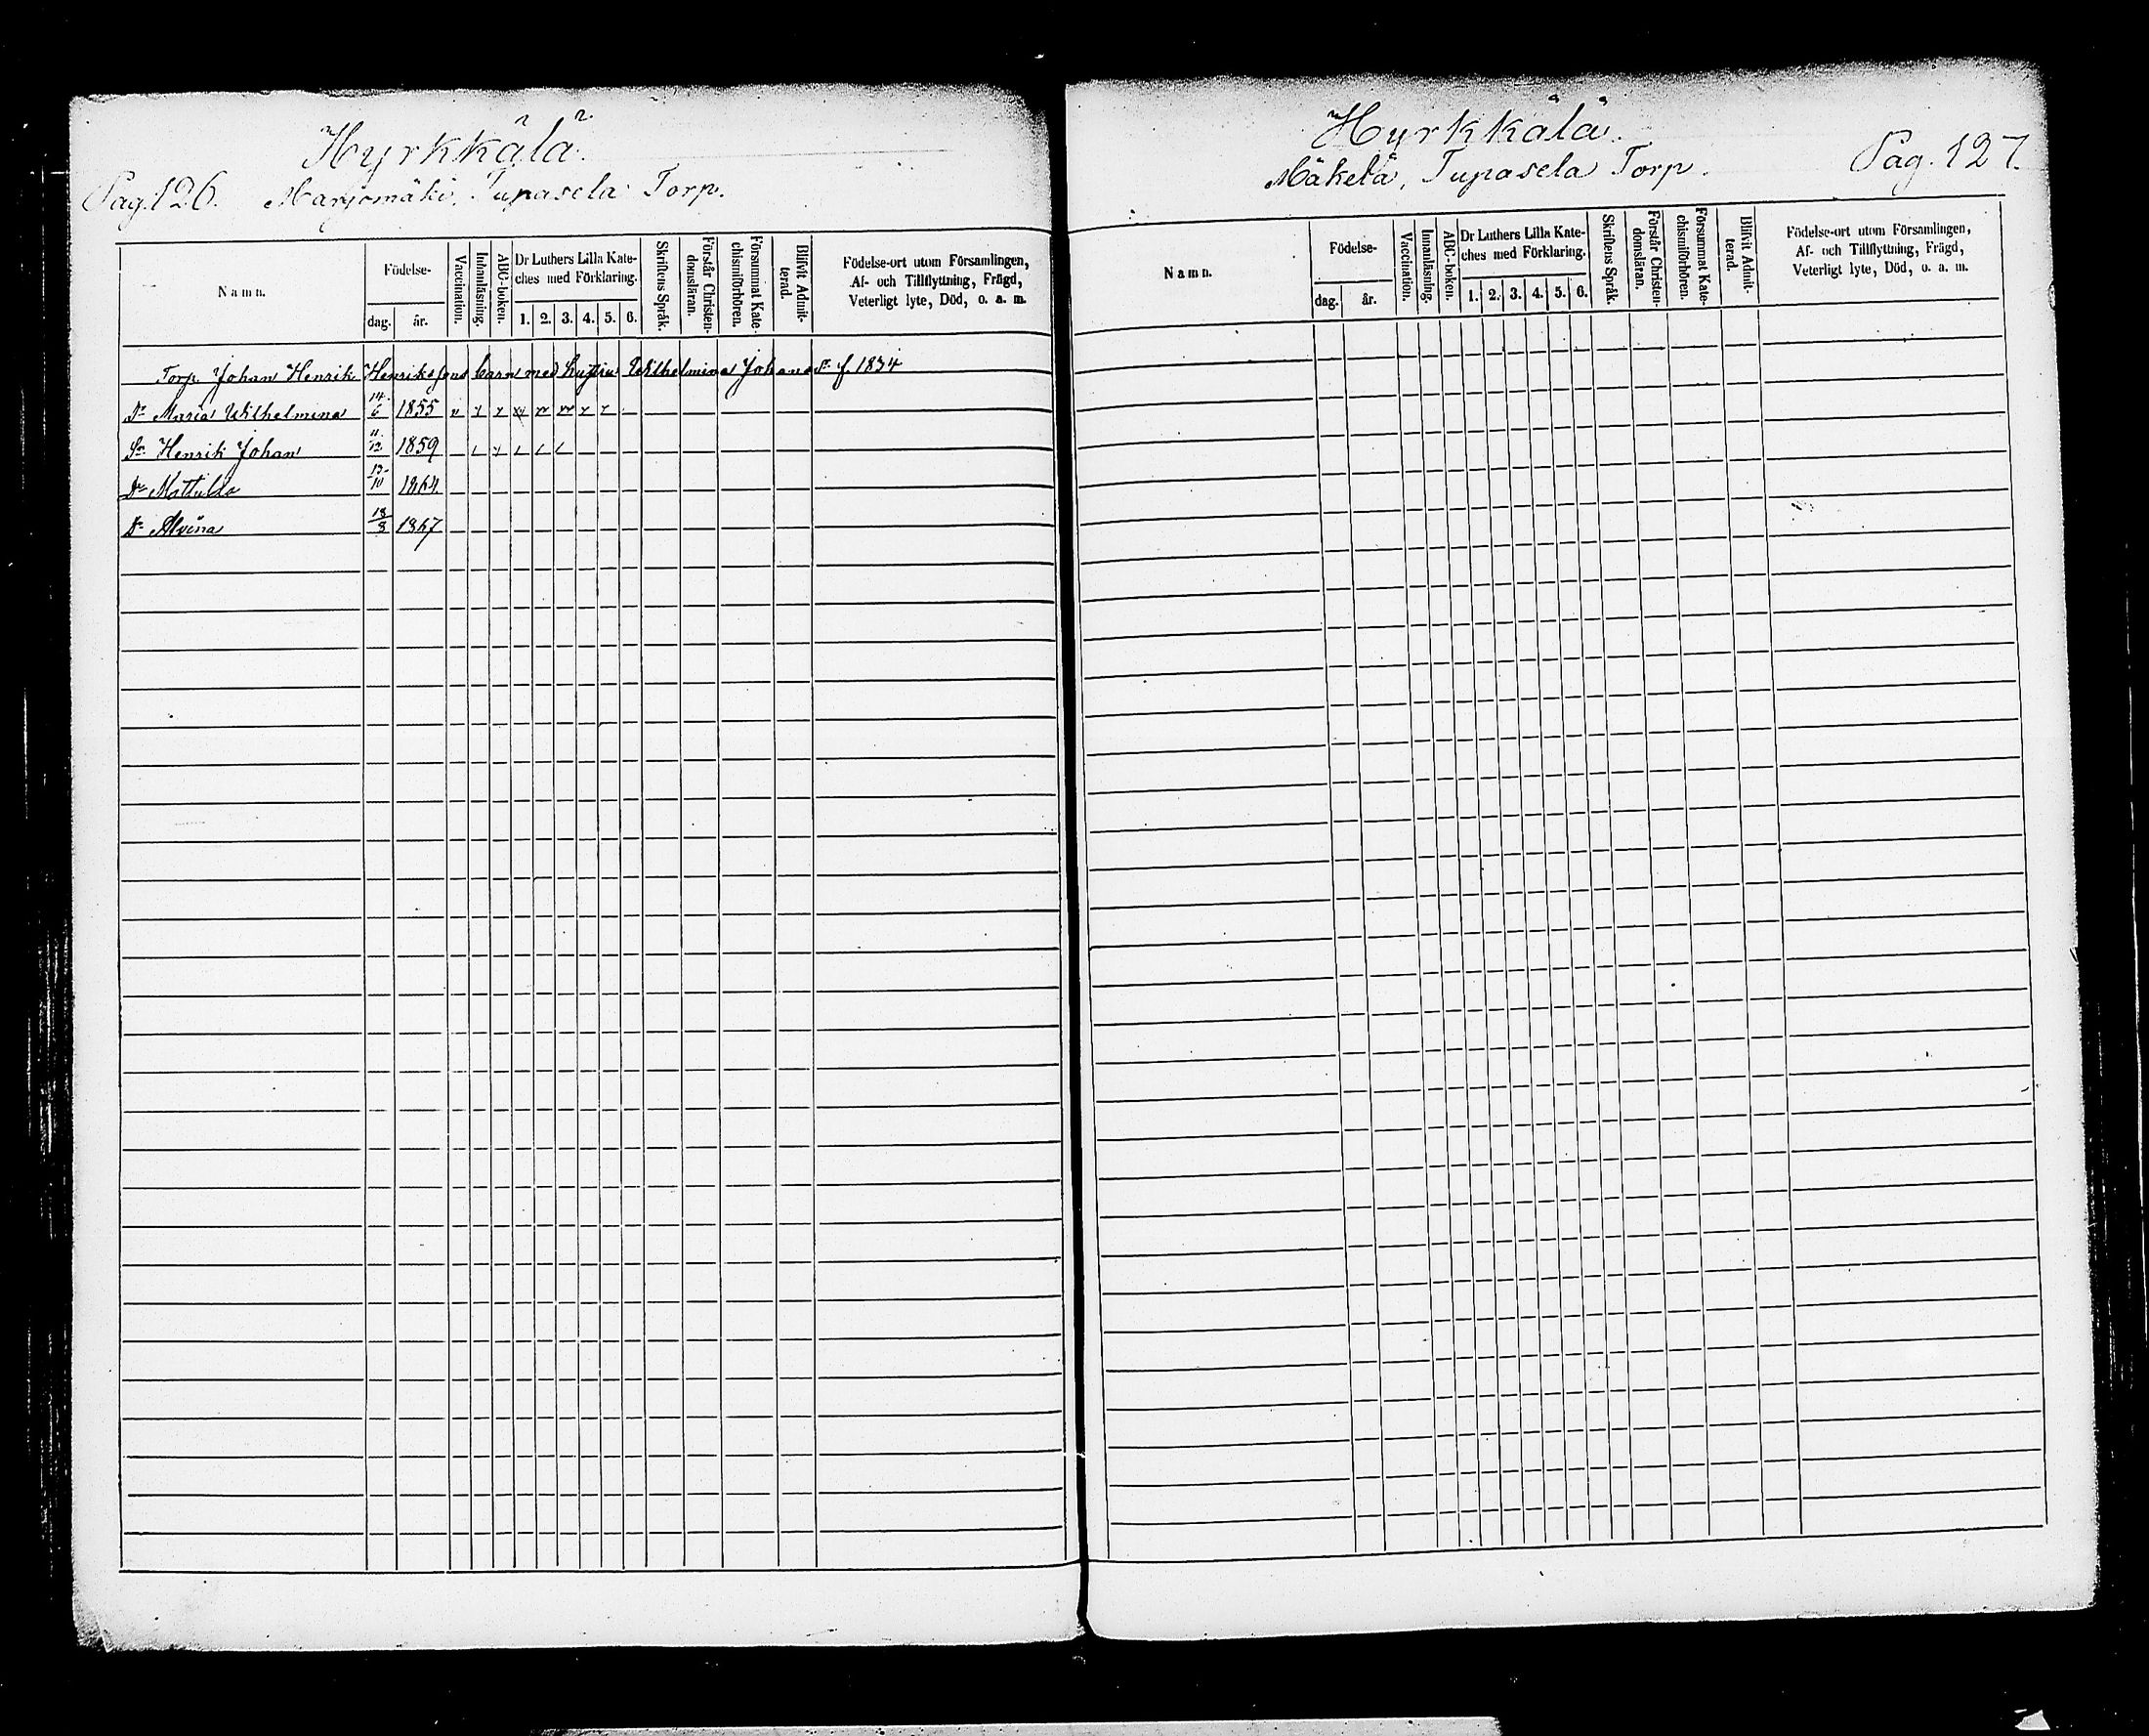 Hyrkkälä.
Pag. 126. Marjomäki, Tupasela Torp.
Namn. Födelse- dag. år. Vaccination. Innanläsning. ABC-boken. Dr Luthers Lilla Kate-ches med Förklaring. 1. 2. 3. 4. 5. 6. Skriftens Språk. Förstår Christen-domsläran. Försummat Kate-chismiförhören. Blifvit Admit-terad. Födelse-ort utom Församlingen, Af- och Tillflyttning, Frägd, Veterligt lyte, Död, o. a. m.
Torp. Johan Henrik Henrikssons barn med hustru Wilhelmina Johansdr f. 1834
Dr Maria Wilhelmina 14/6 1855
Sn Henrik Johan 11/12 1859
Dr Mathilda 13/10 1864
Dr Alvina 18/8 1867
Hyrkkälä.
Mäkelä, Tupasela Torp. Pag. 127.
Namn. Födelse- dag. år. Vaccination. Innanläsning. ABC-boken. Dr Luthers Lilla Kate-ches med Förklaring. 1. 2. 3. 4. 5. 6. Skriftens Språk. Förstår Christen-domsläran. Försummat Kate-chismiförhören. Blifvit Admit-terad. Födelse-ort utom Församlingen, Af- och Tillflyttning, Frägd, Veterligt lyte, Död, o. a. m.